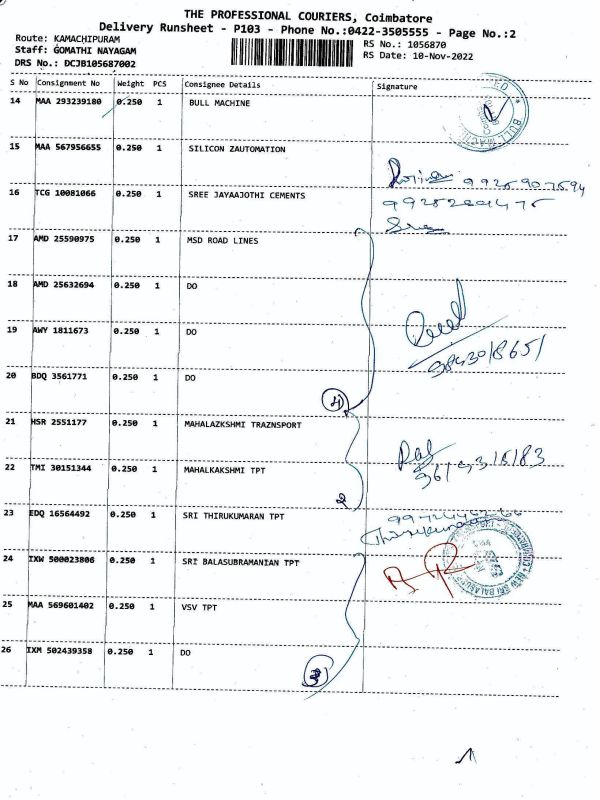 THE PROFESSIONAL COURIERS, Coimbatore
Delivery Runsheet - P103 - Phone No.:0422-3505555 - Page No.:2
Route: KAMACHIPURAM
RS No.: 1056870
Staff: GOMATHI NAYAGAM
RS Date: 10-Nov-2022
DRS No.: DCJB105687002
S No Consignment No Weight PCS Consignee Details Signature
14 MAA 293239180 0.250 1 BULL MACHINE
15 MAA 567956655 0.250 1 SILICON ZAUTOMATION
16 TCG 10081066 0.250 1 SREE JAYAAJOTHI CEMENTS
17 AMD 25590975 0.250 1 MSD ROAD LINES
18 AMD 25632694 0.250 1 DO
19 AWY 1811673 0.250 1 DO
9843018651
20 BDQ 3561771 0.250 1 DO
4
21 HSR 2551177 0.250 1 MAHALAZKSHMI TRAZNSPORT
22 TMI 30151344 0.250 1 MAHALKAKSHMI TPT
2
23 EDQ 16564492 0.250 1 SRI THIRUKUMARAN TPT
24 IXW 500023806 0.250 1 SRI BALASUBRAMANIAN TPT
25 MAA 569601402 0.250 1 VSV TPT
26 IXM 502439358 0.250 1 DO
3